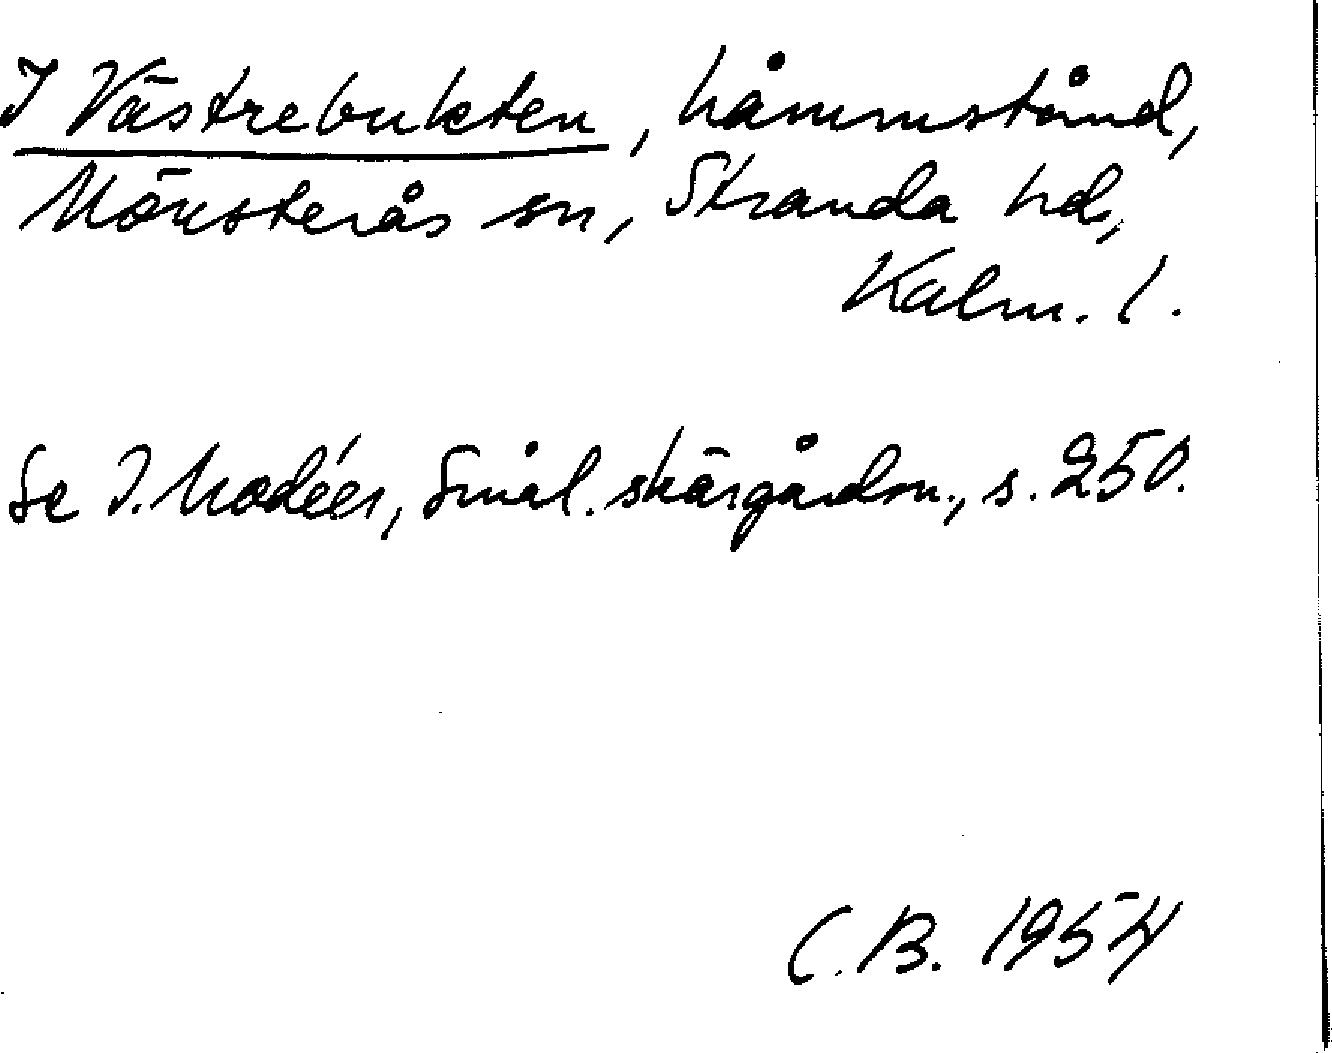 I Västrebukten, håmmstånd,
Mönsterås sn, Stranda hd,
Kalm. l.
Se I. Modéer, Smål. skärgårdsn., s. 250.
C.B. 1954